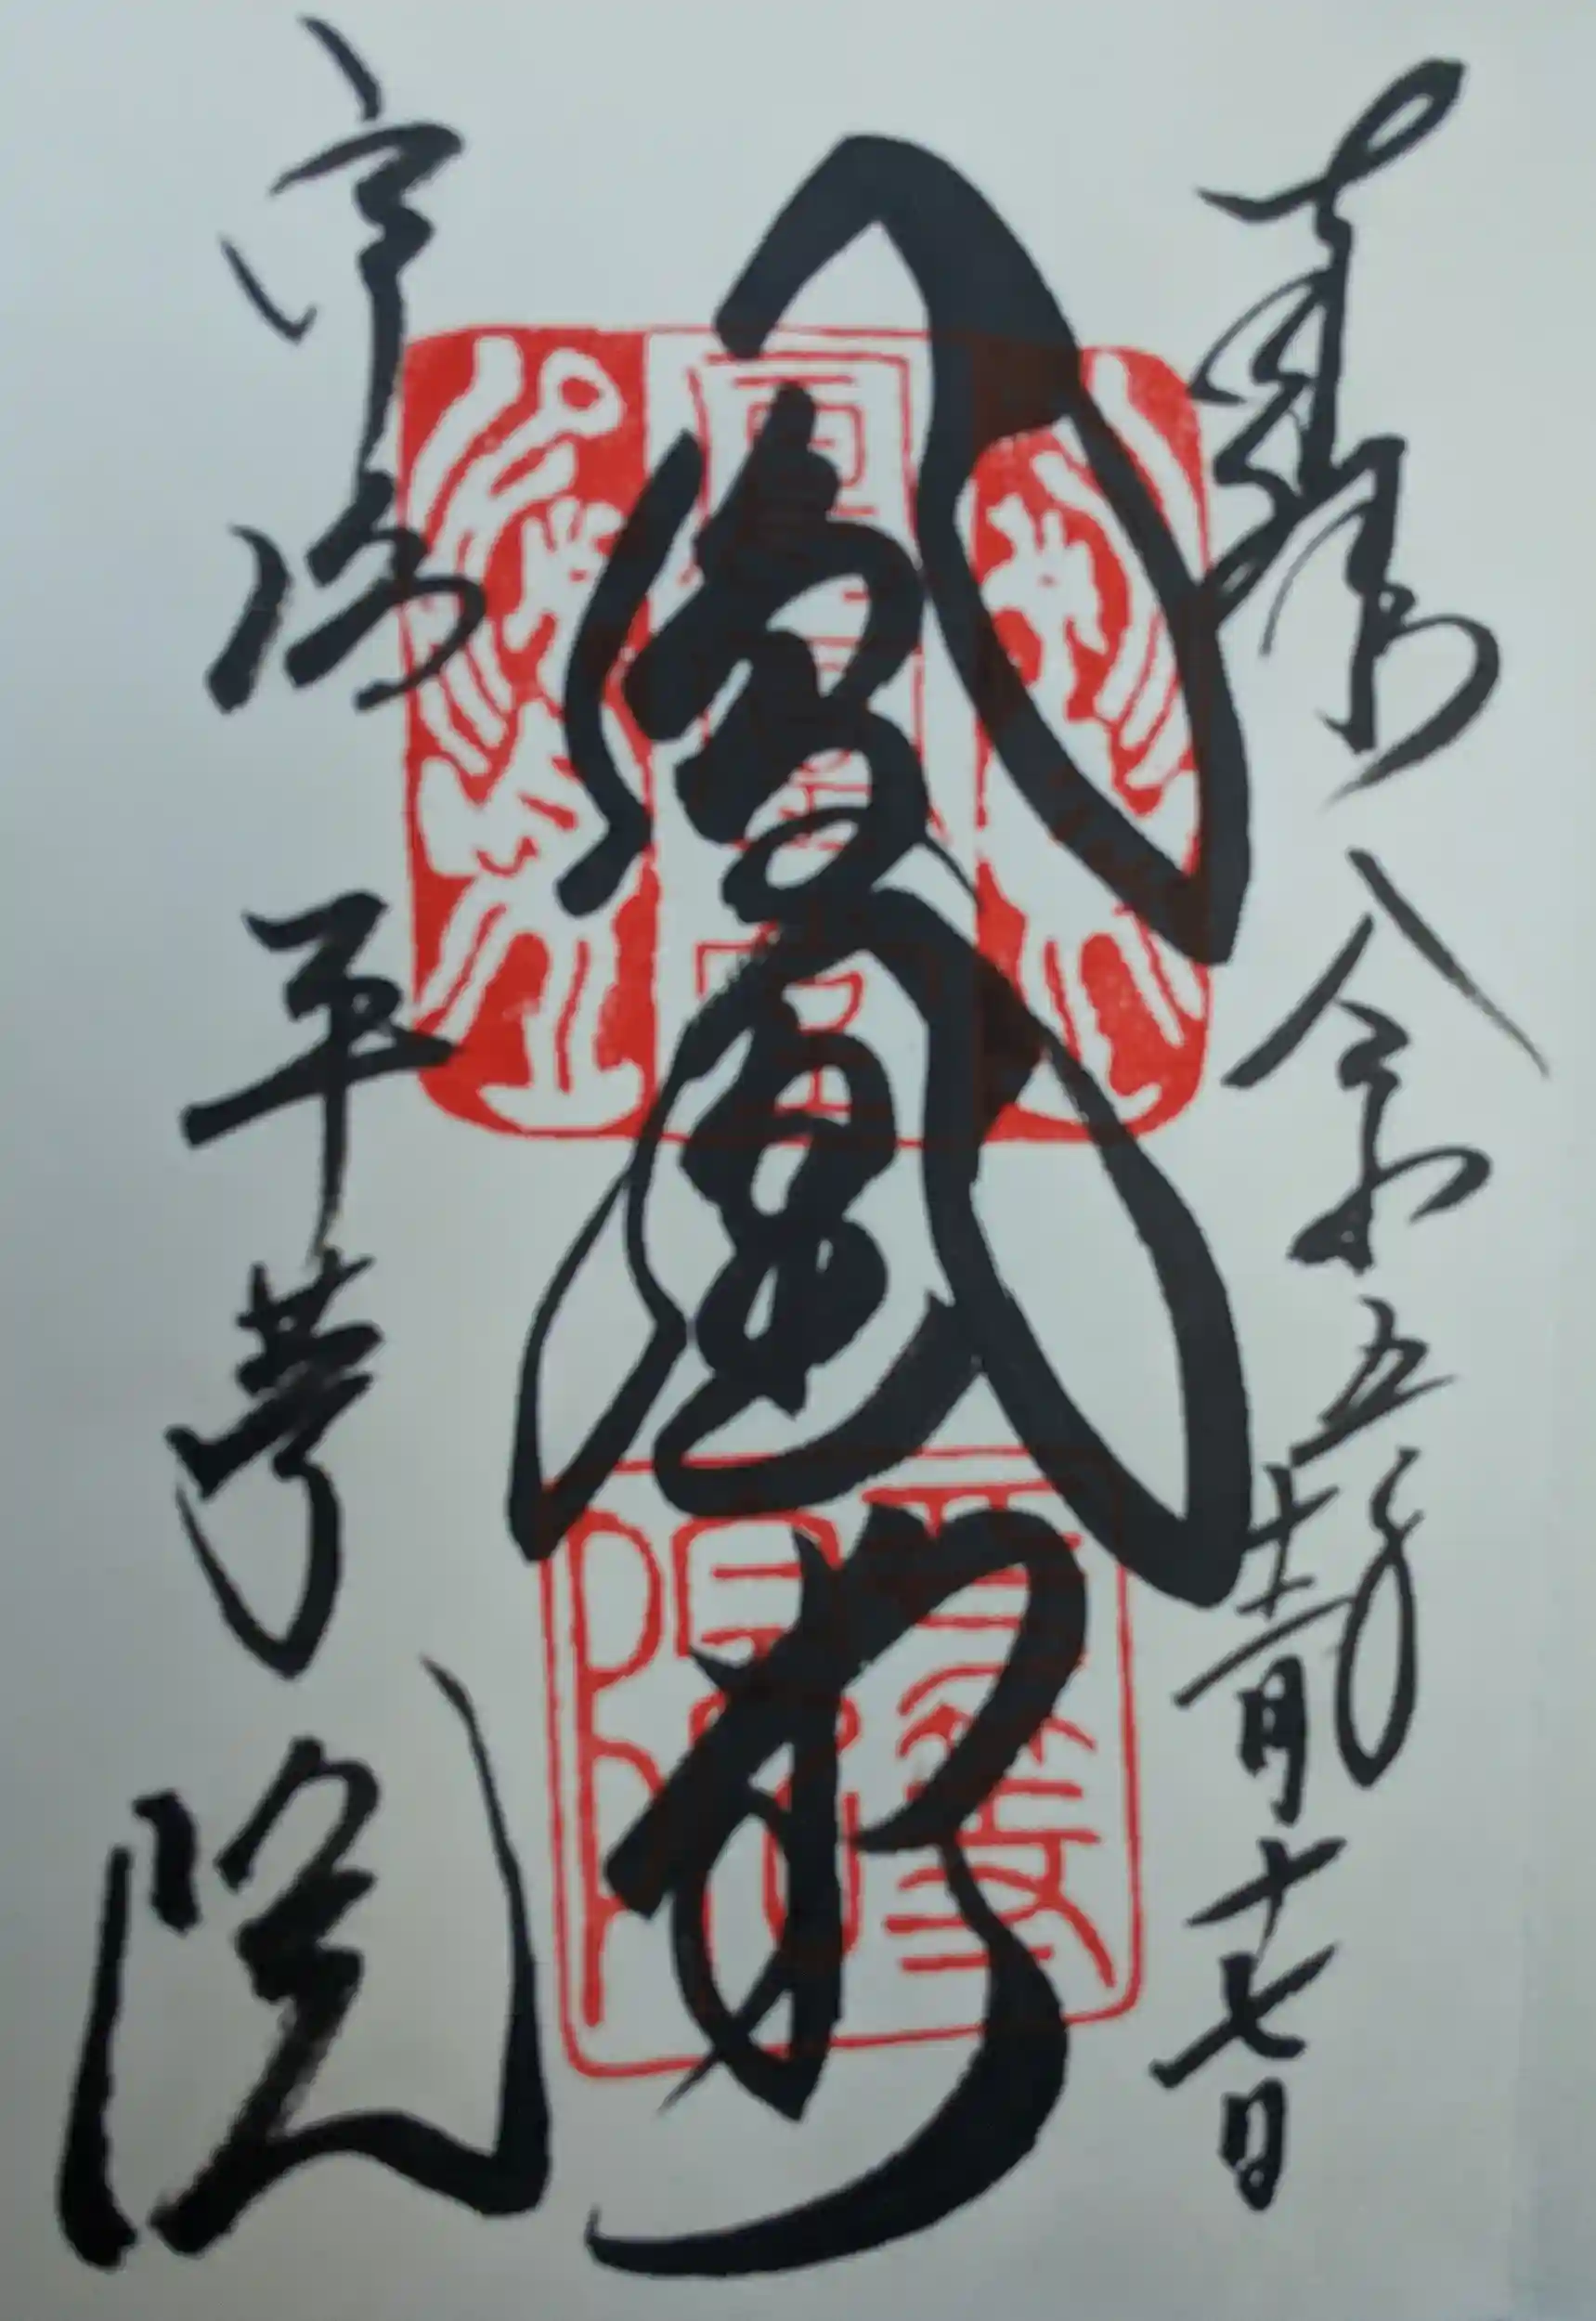 奉拝 令和五年十一月十七日
鳳凰堂
宇治 平等院